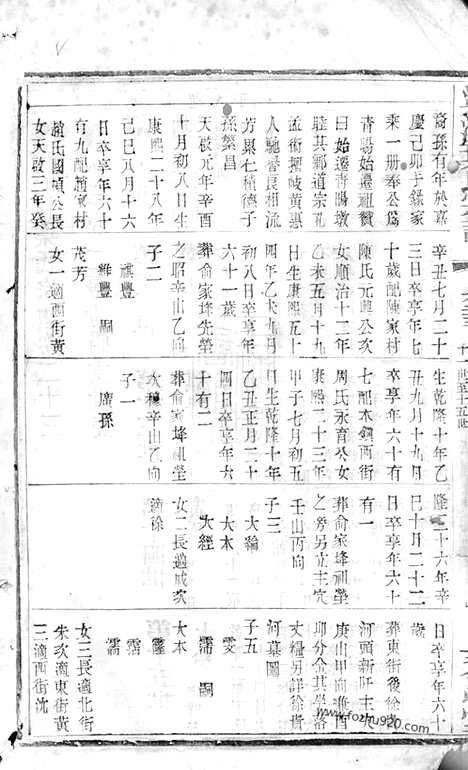 裔孫有年於嘉
慶己卯手錄家
乘一冊奉公爲
青陽始遷祖贊
曰始遷青陽墩
睦其鄉道宗孔
孟術擅岐黄惠
人馳譽良相流
芳累仁積德子
孫繁昌
天啟元年辛酉
十月初八日生
康熙二十八年
己巳八月十六
日卒享年六十
有九配趙家村
趙氏國楨公長
女天啟三年癸
辛丑七月二十
三日卒享年七
十歲配陳家村
陳氏元興公次
女順治十二年
乙未五月十九
日生康熙五十
四年乙未九月
初八日卒享年
六十一歲
葬俞家垾先塋
之昭辛山乙向
子二
祺豐
維豐 嗣
茂芳
女一適西街黄
生乾隆十年乙
丑九月十九日
卒享年六十有
七配本鎮西街
周氏永育公女
康熙二十三年
甲子七月初五
日生乾隆十年
乙丑正月二十
四日卒享年六
十有二
葬俞家垾祖塋
次穆辛山乙向
子一
席孫
隆二十六年辛
巳十月二十二
日卒享年六十
有一
葬俞家垾祖塋
之旁另立主穴
壬山丙向
子三
大綸
大本
大經
女二長適戚次
適徐
日卒享年六十
歲
葬東街後徐
河頭新阡主穴
庚山甲向兼
卯分金其塋浴
丈糧另詳徐貴
河墓圖
子五
雯
霈 嗣
大本
霳
霑
濡
女三長適北街
朱次適東街黄
三適西街沈
www.fozhu920.com